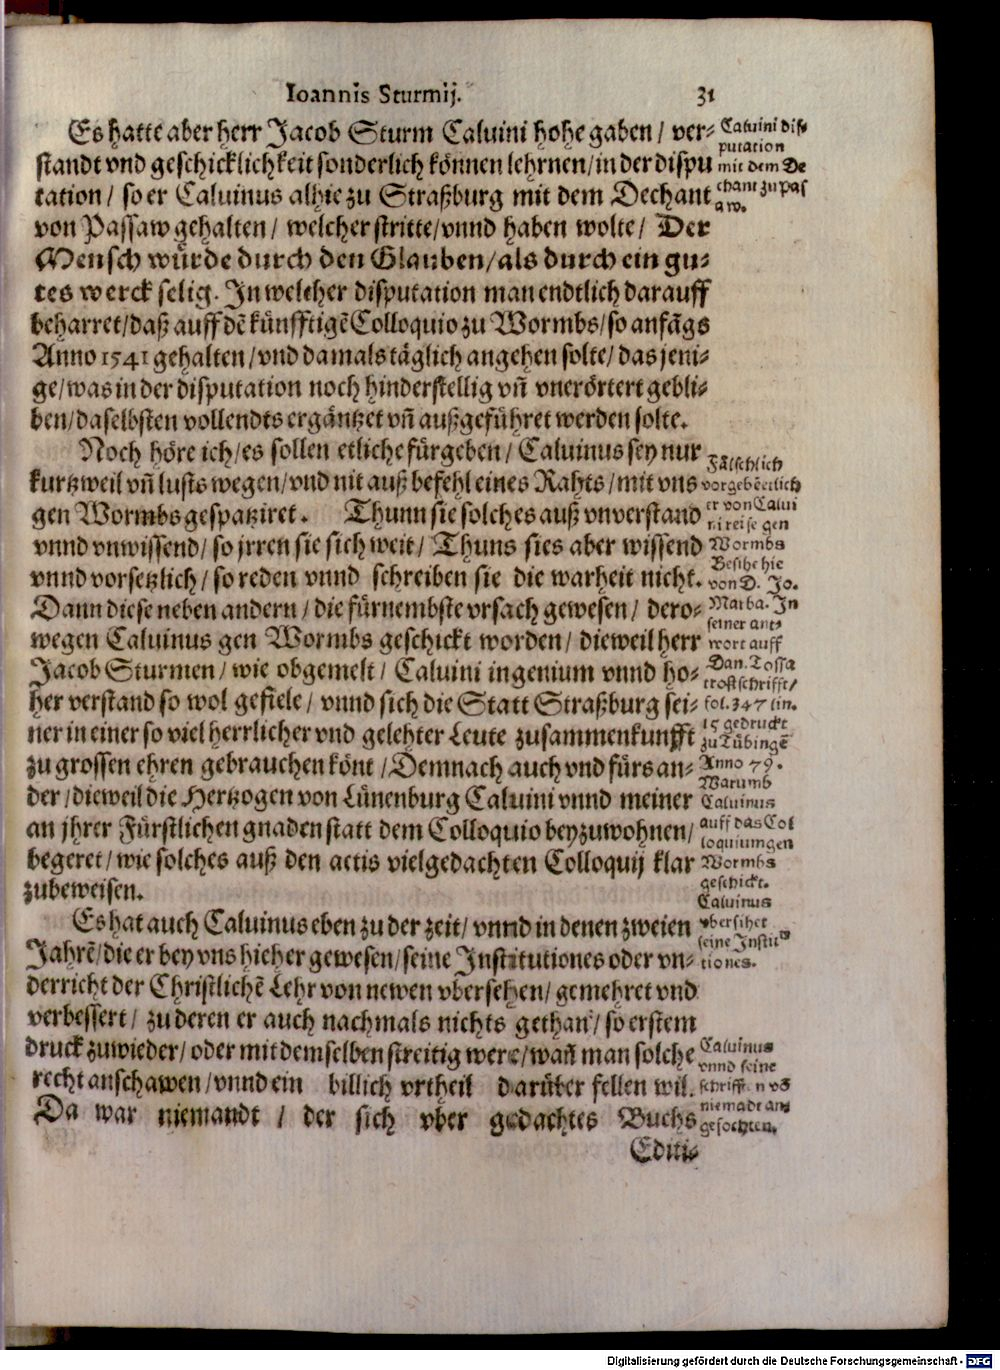 Ioannis Sturmij. 31
Es hatte aber herr Jacob Sturm Caluini hohe gaben / ver-
standt vnd geschicklichkeit sonderlich können lehrnen / in der dispu
tation / so er Caluinus alhie zu Straßburg mit dem Dechant
von Passaw gehalten / welcher stritte / vnnd haben wolte / Der
Mensch würde durch den Glauben / als durch ein gu-
tes werck selig. In welcher disputation man endtlich darauff
beharret / daß auff dē künfftigē Colloquio zu Wormbs / so anfāgs
Anno 1541 gehalten / vnd damals täglich angehen solte / das jeni-
ge / was in der disputation noch hinderstellig vn̄ vnerörtert gebli-
ben / daselbsten vollendts ergäntzet vn̄ außgeführet werden solte.
Noch höre ich / es sollen etliche fürgeben / Caluinus sey nur
kurtzweil vn̄ lusts wegen / vnd nit auß befehl eines Rahts / mit vns
gen Wormbs gespatziret. Thunn sie solches auß vnverstand
vnnd vnwissend / so jrren sie sich weit / Thuns sies aber wissend
vnnd vorsetzlich / so reden vnnd schreiben sie die warheit nicht.
Dann diese neben andern / die fürnembste vrsach gewesen / dero-
wegen Caluinus gen Wormbs geschickt worden / dieweil herr
Jacob Sturmen / wie obgemelt / Caluini ingenium vnnd ho-
her verstand so wol gefiele / vnnd sich die Statt Straßburg sei-
ner in einer so viel herrlicher vnd gelehter Leute zusammenkunfft
zu grossen ehren gebrauchen könt / Demnach auch vnd fürs an-
der / dieweil die Hertzogen von Lünenburg Caluini vnnd meiner
an jhrer Fürstlichen gnaden statt dem Colloquio beyzuwohnen /
begeret / wie solches auß den actis vielgedachten Colloquij klar
zubeweisen.
Es hat auch Caluinus eben zu der zeit / vnnd in denen zweien
Jahrē / die er bey vns hieher gewesen / seine Institutiones oder vn-
derricht der Christlichē Lehr von newen vbersehen / gemehret vnd
verbessert / zu deren er auch nachmals nichts gethan / so erstem
druck zuwieder / oder mit demselben streitig were / wan̄ man solche
recht anschawen / vnnd ein billich vrtheil darüber fellen wil.
Da war niemandt / der sich vber gedachtes Buchs
Editi-
Caluini dis-
putation
mit dem De
chant zu pas
aw.
Fälschlich
vorgebē etlich
er von Calui
ni reise gen
Wormbs
Besihe hie
von D. Jo.
Marba. In
seiner ant-
wort auff
Dan. Tossa
trostschrifft /
fol. 347 lin.
15 gedruckt
zu Tübingē
Anno 79.
Warumb
Caluinus
auff das Col
loquium gen
Wormbs
geschickt.
Caluinus
vbersihet
seine Institu-
tiones.
Caluinus
vnnd seine
schrifften vō
niemādt an-
gefochten.
Digitalisierung gefördert durch die Deutsche Forschungsgemeinschaft - DFG